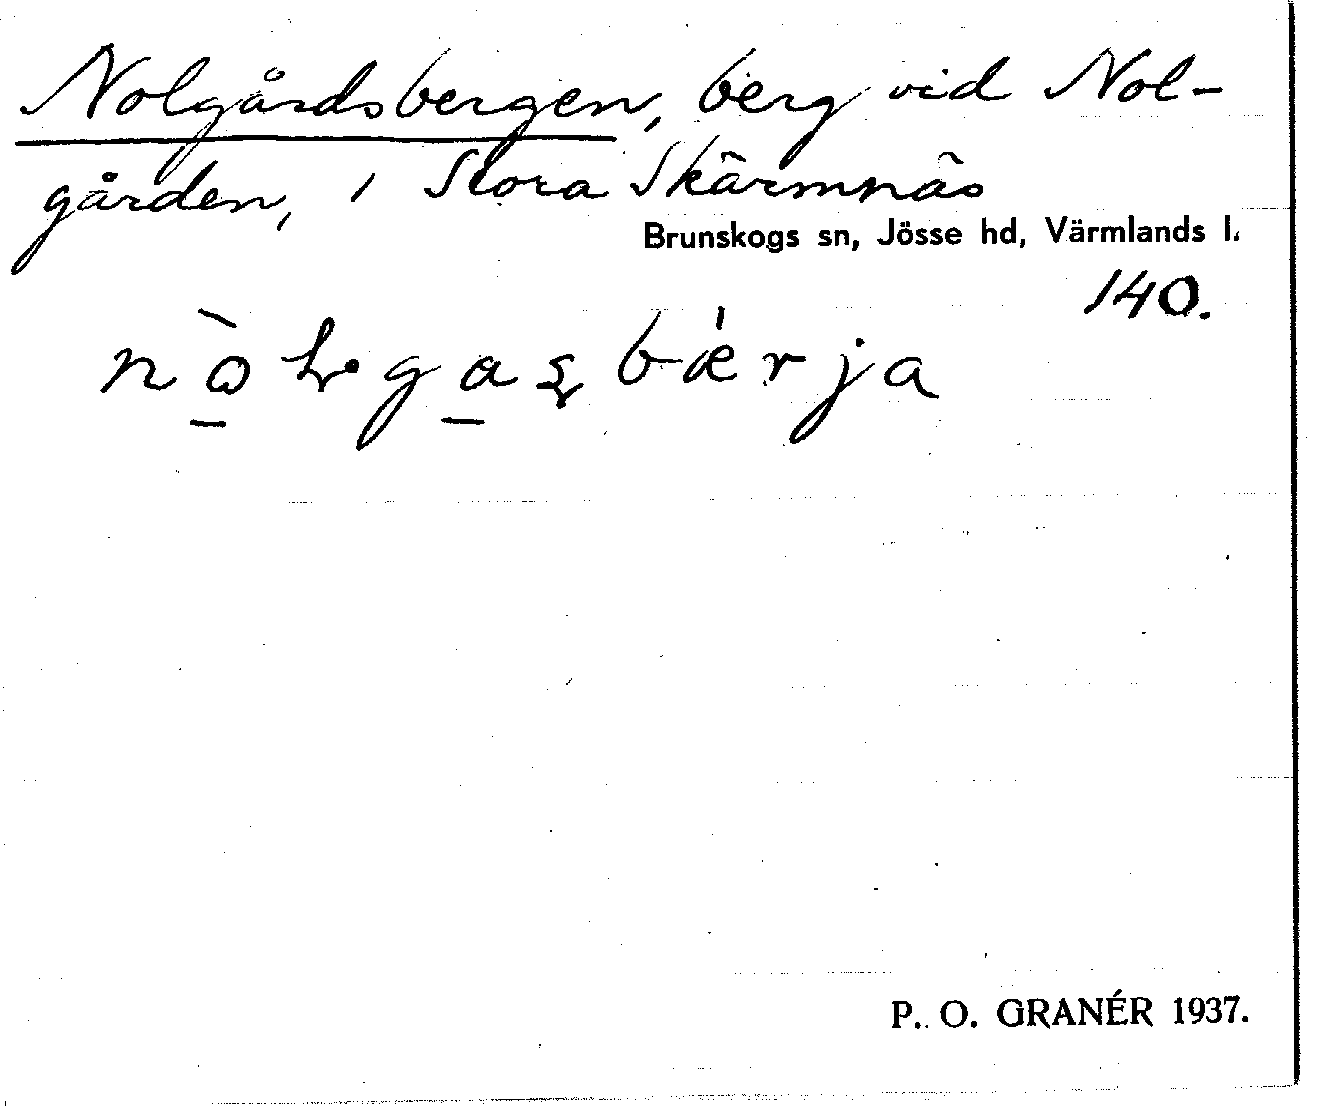 Nolgårdsbergen, berg vid Nol-
gården, i Stora Skärmnäs
Brunskogs sn, Jösse hd, Värmlands l.
140.
P. O. GRANÉR 1937.